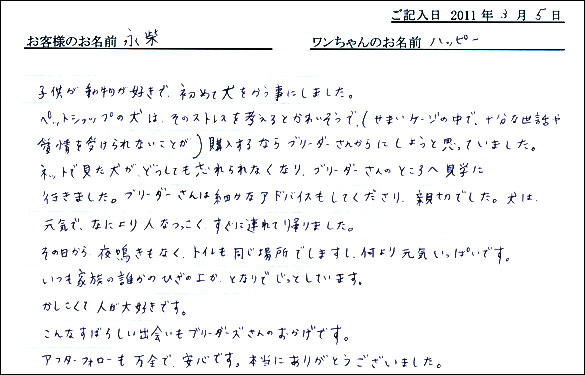 ご記入日 2011 年 3 月 5 日
お客様のお名前 永柴 ワンちゃんのお名前 ハッピー
子供が動物が好きで、初めて犬をかう事にしました。
ペットショップの犬は、そのストレスを考えるとかわいそうで、(せまいケージの中で、十分な世話や
愛情を受けられないことが)購入するならブリーダーさんからにしようと思っていました。
ネットで見た犬が、どうしても忘れられなくなり、ブリーダーさんのところへ見学に
行きました。ブリーダーさんは細かなアドバイスもしてくださり、親切でした。犬は、
元気で、なにより人なつっこく、すぐに連れて帰りました。
その日から、夜鳴きもなく、トイレも同じ場所でしますし、何より元気いっぱいです。
いつも家族の誰かのひざの上か、となりでじっとしています。
かしこくて人が大好きです。
こんなすばらしい出会いもブリーダーズさんのおかげです。
アフターフォローも万全で、安心です。本当にありがとうございました。